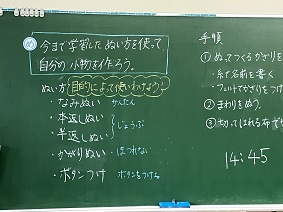 今まで学習した ぬい方を使って
自分の小物を作ろう。
ぬい方 目的によって使いわけよう!
・なみぬい かんたん
・本返しぬい
・半返しぬい
じょうぶ
・かがりぬい ほつれない
・ボタンつけ ボタンをつける
手順
① ぬってつくるかざりを
・糸で名前を書く
・フェルトでかざりをつ
② まわりをぬう。
③ 切ってはれる布で
14:45